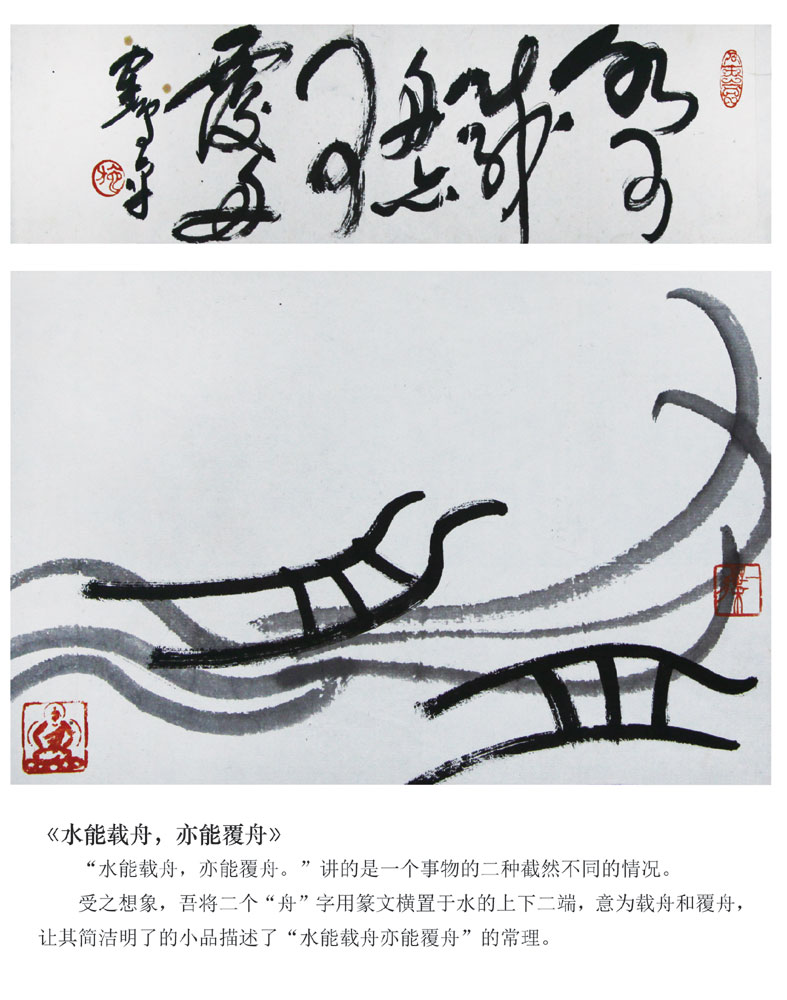 水可
載
舟亦
可
覆舟
《水能载舟，亦能覆舟》
“水能载舟，亦能覆舟。”讲的是一个事物的二种截然不同的情况。
受之想象，吾将二个“舟”字用篆文横置于水的上下二端，意为载舟和覆舟，
让其简洁明了的小品描述了“水能载舟亦能覆舟”的常理。